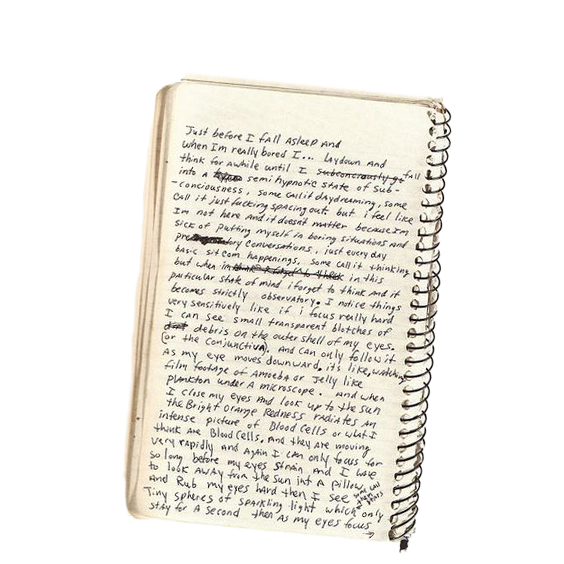 Just before I fall Asleep And
when Im really bored I... laydown And
think for awhile until I subconciously go fall
into a semi hypnotic state of sub-
-conciousness, some call it daydreaming, some
call it just fucking spacing out. but i feel like
Im not here And it doesnt matter because Im
sick of putting myself in boring situations and
conversations, just every day
basic sitcom happenings, some call it thinking
but when im in this
particular state of mind i forget to think and it
becomes strictly observatory. I notice things
very sensitively like if i focus really hard
I can see small transparent blotches of
debris on the outer shell of my eyes.
(or the conjunctiva). And can only follow it
As my eye moves downward. its like, watching
film footage of Amoeba or Jelly like
plankton under A microscope. And when
I close my eyes And look up to the sun
the Bright orange Redness radiates An
intense picture of Blood cells or what I
think are Blood Cells. And they are moving
very rapidly and Again I can only focus for
so long before my eyes strain And I have
to look AwAy from the sun into A pillow
And Rub my eyes hard then I see some call them stars
Tiny spheres of sparkling light which only
stay for A second then As my eyes focus
→